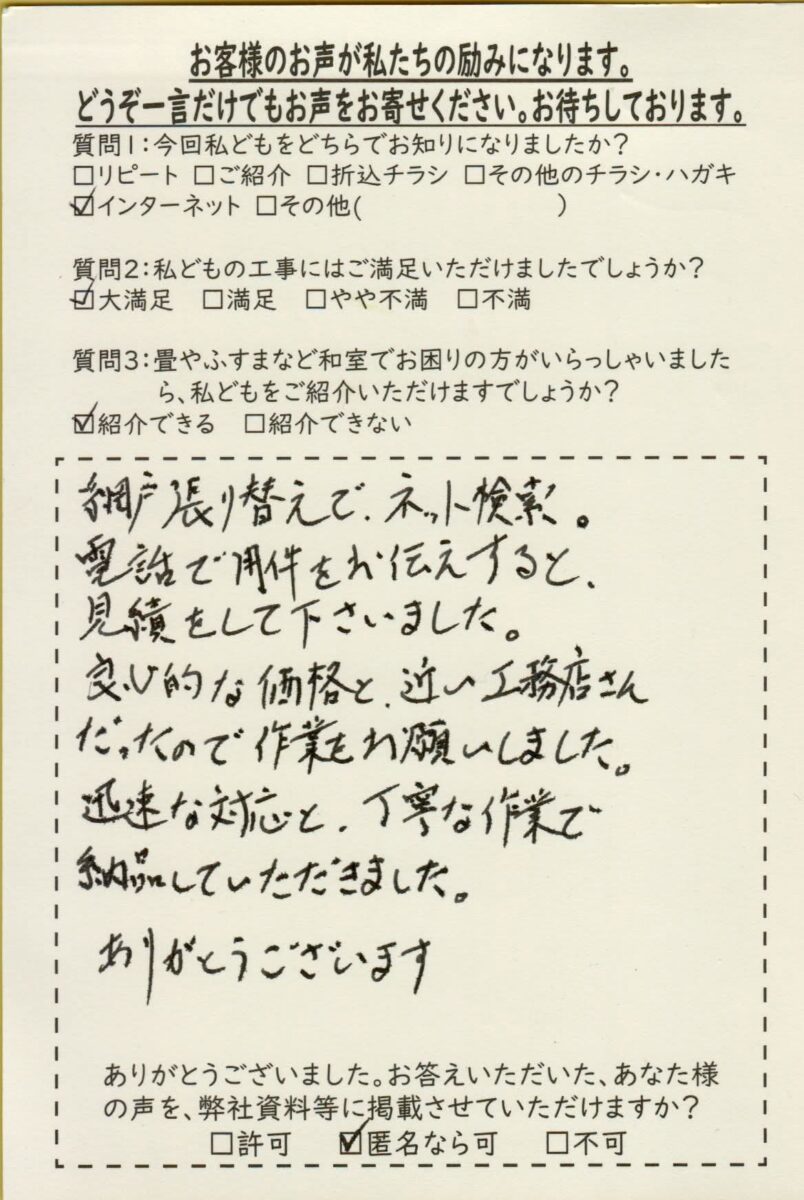 お客様のお声が私たちの励みになります。
どうぞ一言だけでもお声をお寄せください。お待ちしております。
質問1：今回私どもをどちらでお知りになりましたか？
□リピート □ご紹介 □折込チラシ □その他のチラシ・ハガキ
☑インターネット □その他(　　　　　　　　)
質問2：私どもの工事にはご満足いただけましたでしょうか？
☑大満足 □満足 □やや不満 □不満
質問3：畳やふすまなど和室でお困りの方がいらっしゃいました
ら、私どもをご紹介いただけますでしょうか？
☑紹介できる □紹介できない
網戸張り替えで、ネット検索。
電話で用件をお伝えすると、
見績をして下さいました。
良心的な価格と、近い工務店さん
だったので作業をお願いしました。
迅速な対応と、丁寧な作業で
納品していただきました。
ありがとうございます
ありがとうございました。お答えいただいた、あなた様
の声を、弊社資料等に掲載させていただけますか？
□許可 ☑匿名なら可 □不可